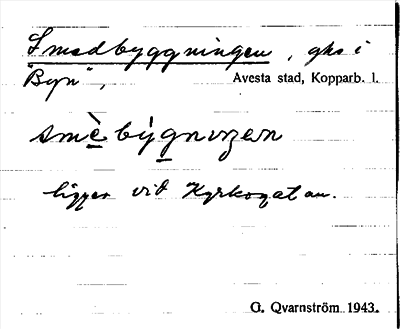 Smedbyggningen, ghs i
"Byn",
Avesta stad, Kopparb. l.
smè̱ býg̱nıŋen
ligger vid Kyrkogatan.
G. Qvarnström 1943.